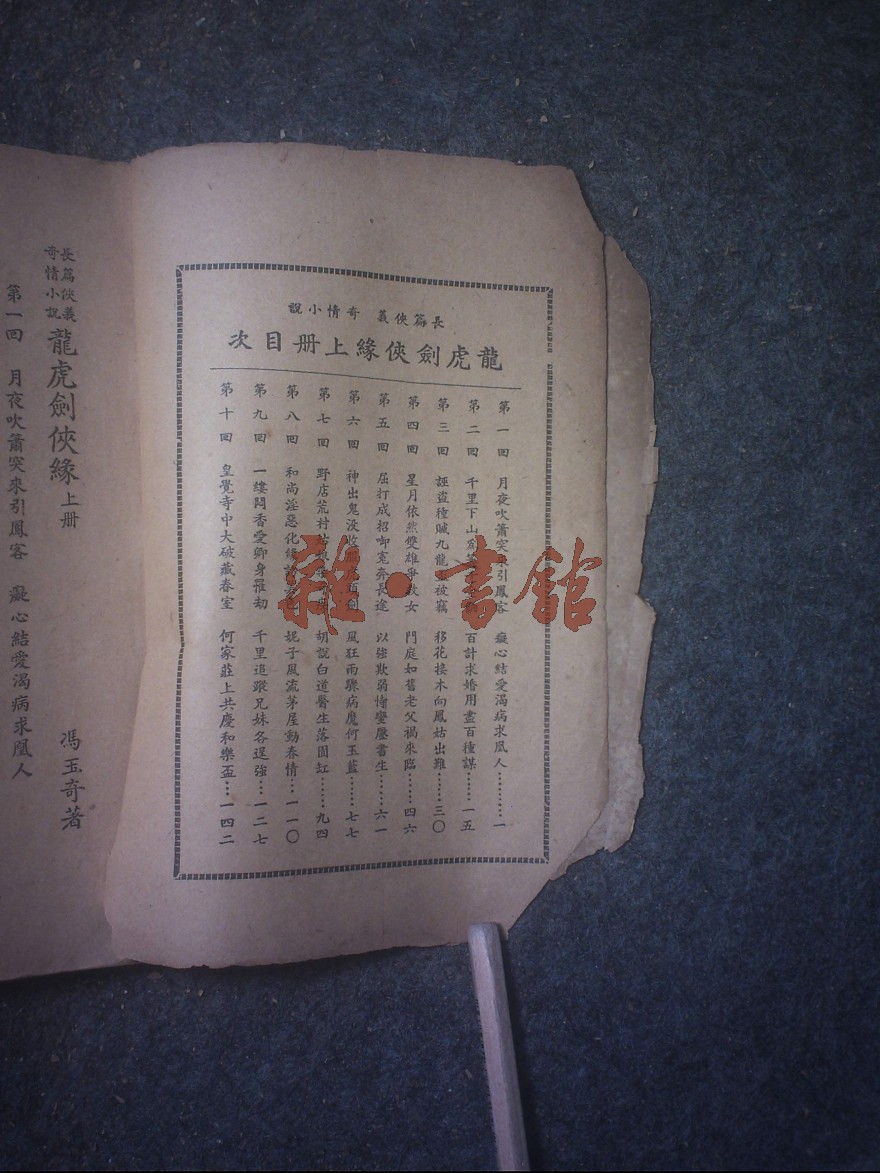 長篇俠義 奇情小說
龍虎劍俠緣上册目次
第一回 月夜吹簫突來引鳳客 癡心結愛渴病求凰人………一
第二回 千里下山 百計求婚用盡百種謀……一五
第三回 誣盜種贓九龍被竊 移花接木向鳳姑出難……三〇
第四回 星月依然雙雄爭女 門庭如舊老父禍來臨……四六
第五回 屈打成招啣寃奔長途 以強欺弱恃蠻壓書生……六一
第六回 神出鬼沒收劍 風狂雨驟病魔何玉藍……七七
第七回 野店荒村 胡說白道醫生落缸……九四
第八回 和尚淫惡化緣 妮子風流茅屋動春情……一一〇
第九回 一縷悶香愛卿身罹劫 千里追蹤兄妹各逞強…一二七
第十回 皇覺寺中大破藏春室 何家莊上共慶和樂盃…一四二
雜·書館
長篇俠義
奇情小說
龍虎劍俠緣 上册
馮玉奇著
第一回 月夜吹簫突來引鳳客 癡心結愛渴病求凰人